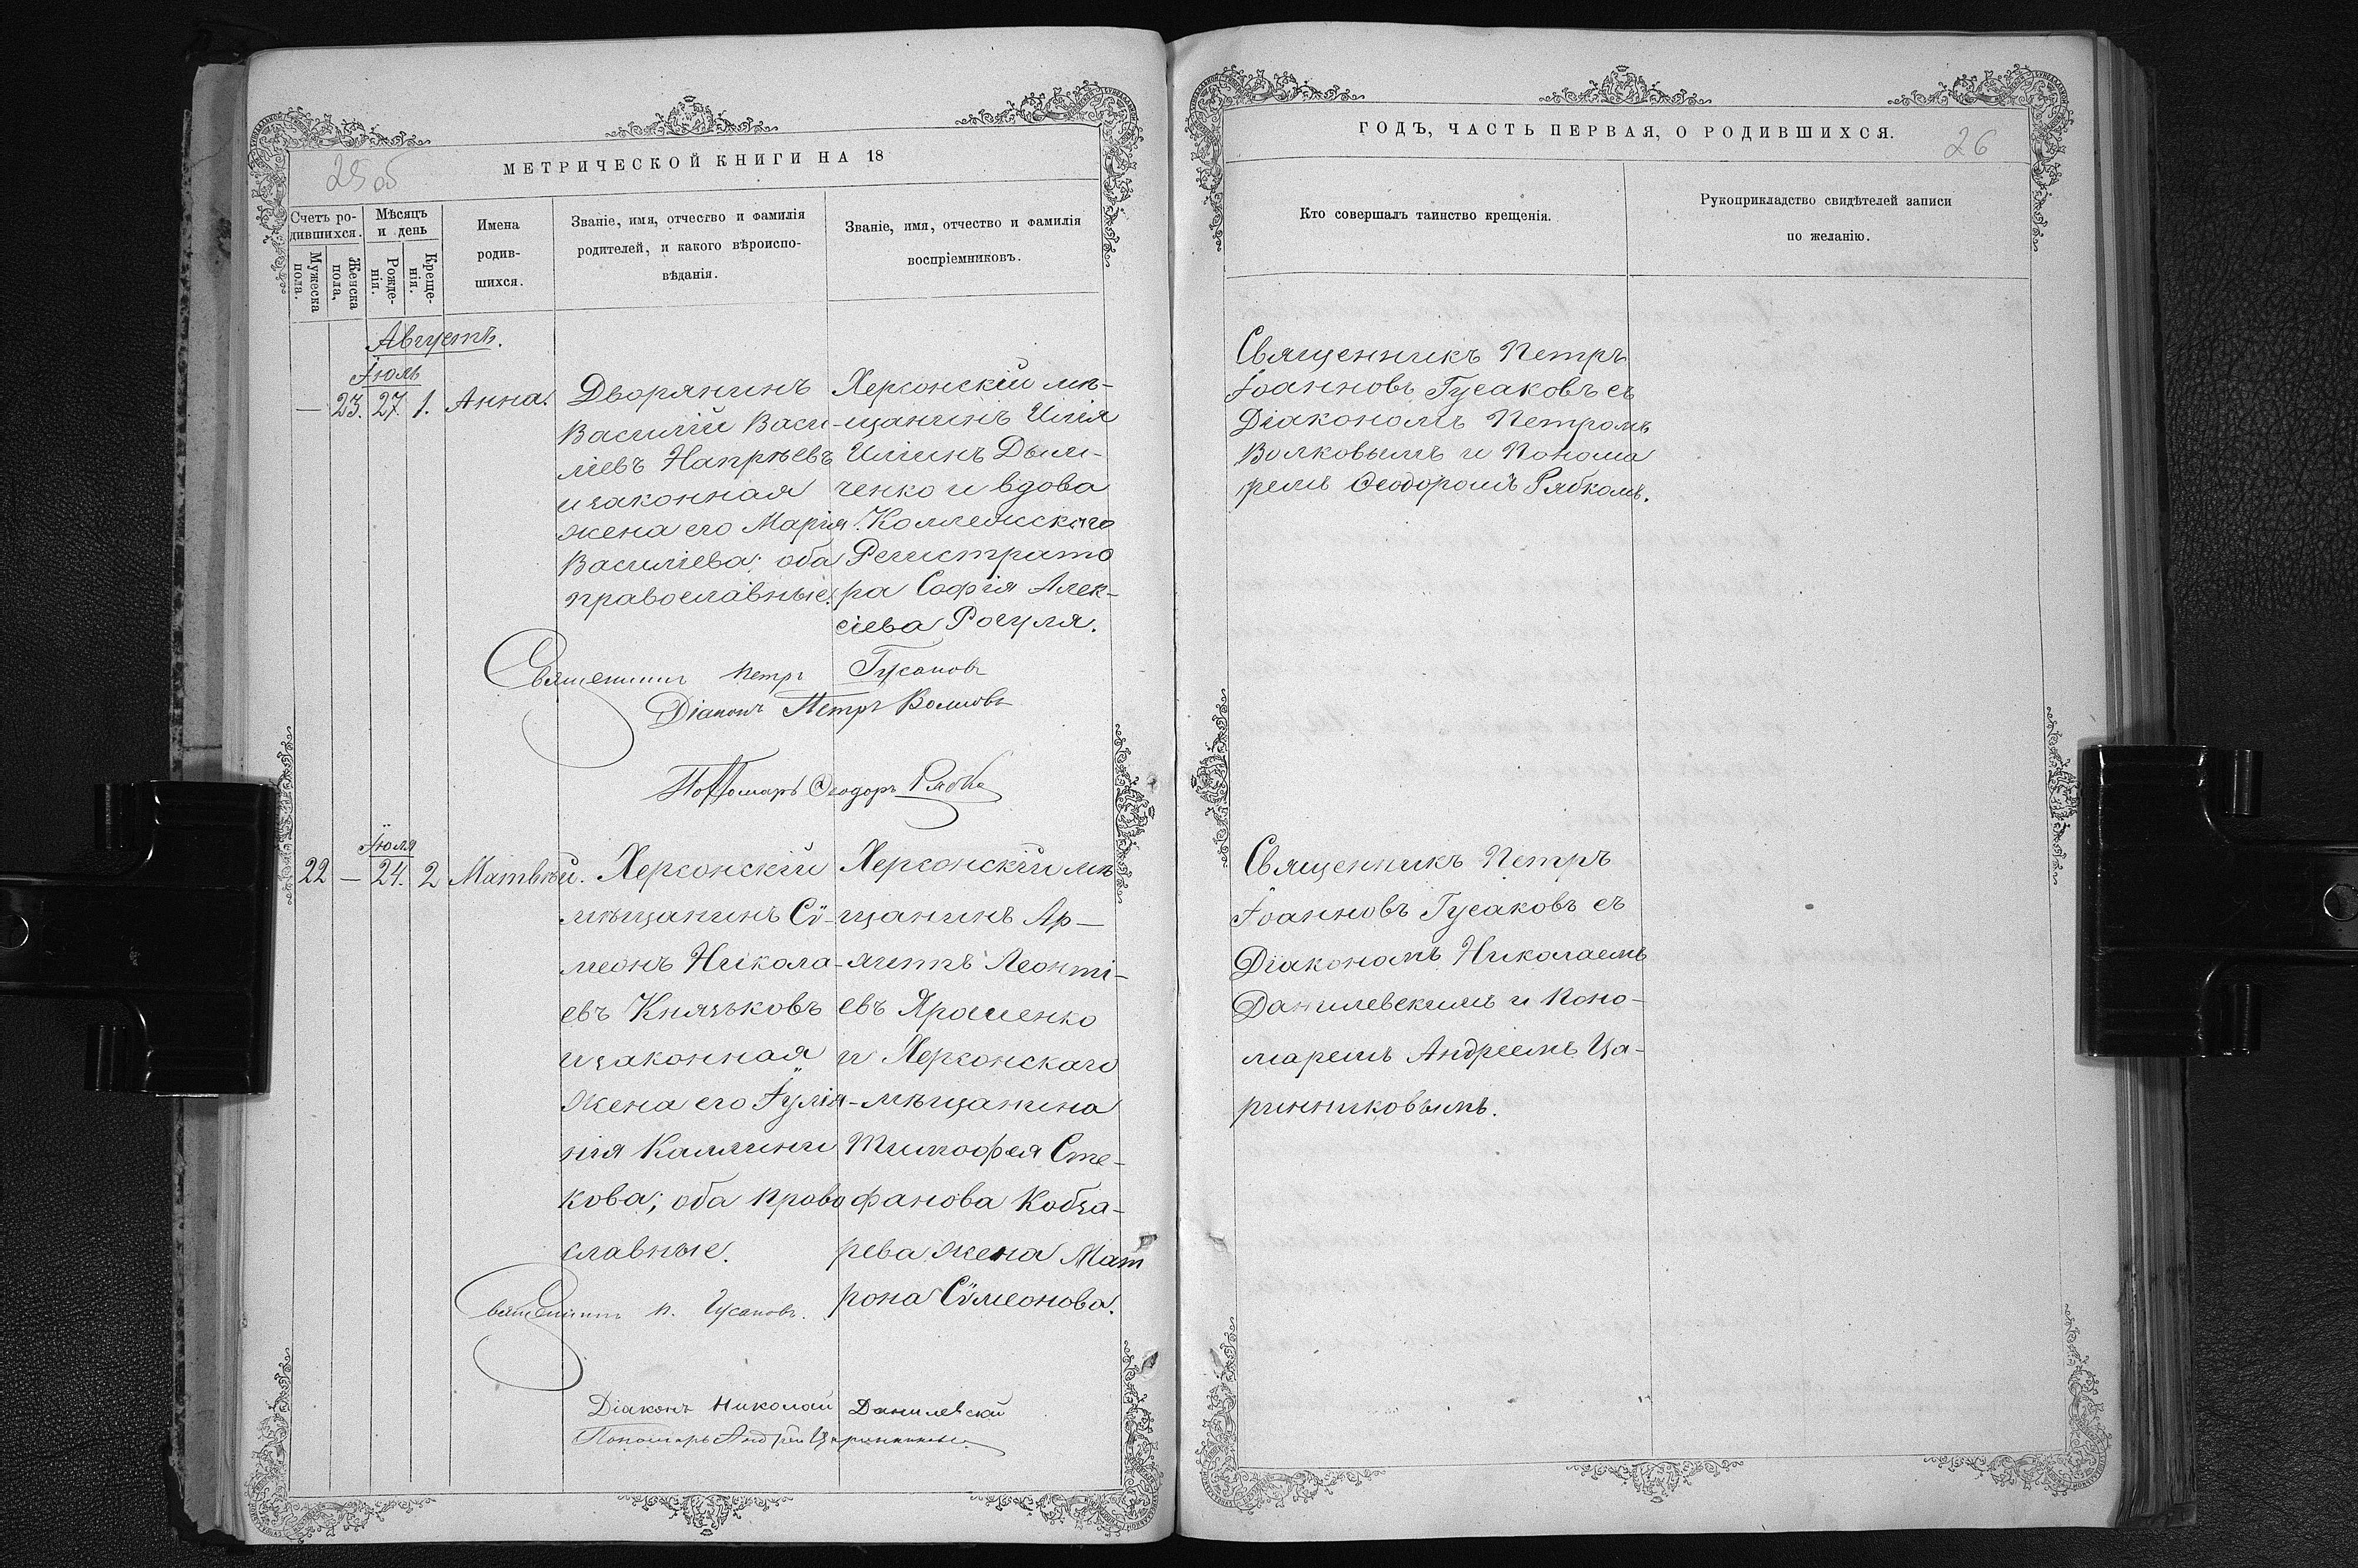 25 об
МЕТРИЧЕСКОЙ КНИГИ НА 18
Счетъ ро-
дившихся.
Мужеска
пола.
Женска
пола.
Мѣсяцъ
и день
Рожде-
нія.
Креще-
нія.
Имена
родив-
шихся.
Званіе, имя, отчество и фамилія
родителей, и какого вѣроиспо-
вѣданія.
Званіе, имя, отчество и фамилія
воспріемниковъ.
Августъ.
Іюль
— 23. 27. 1. Анна.
Дворянинъ
Василій Васи-
ліевъ Напрѣевъ
и законная
жена его Марія
Василіева; оба
православные.
Херсонскій мѣ-
щанинъ Илія
Иліинъ Дьяч-
ченко и вдова
Коллежскаго
Регистрато
ра Софія Алек-
сіева Рогуля.
Священникъ Петръ Гусаковъ
Діаконъ Петръ Волковъ
Пономарь Ѳеодоръ Рябко
Іюля
22 — 24. 2 Матвѣй.
Херсонскій
мѣщанинъ Сѵ-
меонъ Никола-
евъ Князьковъ
и законная
жена его Іулiа-
нія Каллини
кова; оба право
славные.
Херсонскій мѣ
щанинъ Ар-
Леонті-
евъ Ярошенко
и Херсонскаго
мѣщанина
Тимофея Сте-
фанова Кобза-
рева жена Мат
рона Сѵмеонова.
Священникъ П. Гусаковъ.
Діаконъ Николай Данилевскій
Пономарь Андрей Царинниковъ.
ГОДЪ, ЧАСТЬ ПЕРВАЯ, О РОДИВШИХСЯ.
26
Кто совершалъ таинство крещенія.
Рукоприкладство свидѣтелей записи
по желанію.
Священникъ Петръ
Іоанновъ Гусаковъ съ
Діакономъ Петромъ
Волковымъ и Понома
ремъ Ѳеодоромъ Рябкомъ.
Священникъ Петръ
Іоанновъ Гусаковъ съ
Діакономъ Николаемъ
Данилевскимъ и Поно-
маремъ Андреемъ Ца-
ринниковымъ.